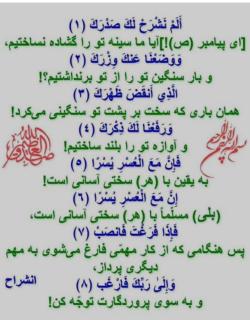 أَلَمْ نَشْرَحْ لَكَ صَدْرَكَ (۱)
[ای پیامبر (ص)!] آیا ما سینه تو را گشاده نساختیم،
وَوَضَعْنَا عَنكَ وِزْرَكَ (۲)
و بار سنگین تو را از تو برنداشتیم؟!
الَّذِي أَنقَضَ ظَهْرَكَ (۳)
همان باری که سخت بر پشت تو سنگینی می‌کرد!
وَرَفَعْنَا لَكَ ذِكْرَكَ (٤)
و آوازه تو را بلند ساختیم!
فَإِنَّ مَعَ الْعُسْرِ يُسْرًا (٥)
به یقین با (هر) سختی آسانی است!
إِنَّ مَعَ الْعُسْرِ يُسْرًا (٦)
(بلی) مسلّماً با (هر) سختی آسانی است،
فَإِذَا فَرَغْتَ فَانصَبْ (۷)
پس هنگامی که از کار مهمّی فارغ می‌شوی به مهم
دیگری پرداز،
وَإِلَىٰ رَبِّكَ فَارْغَب (۸)
انشراح
و به سوی پروردگارت توجّه کن!